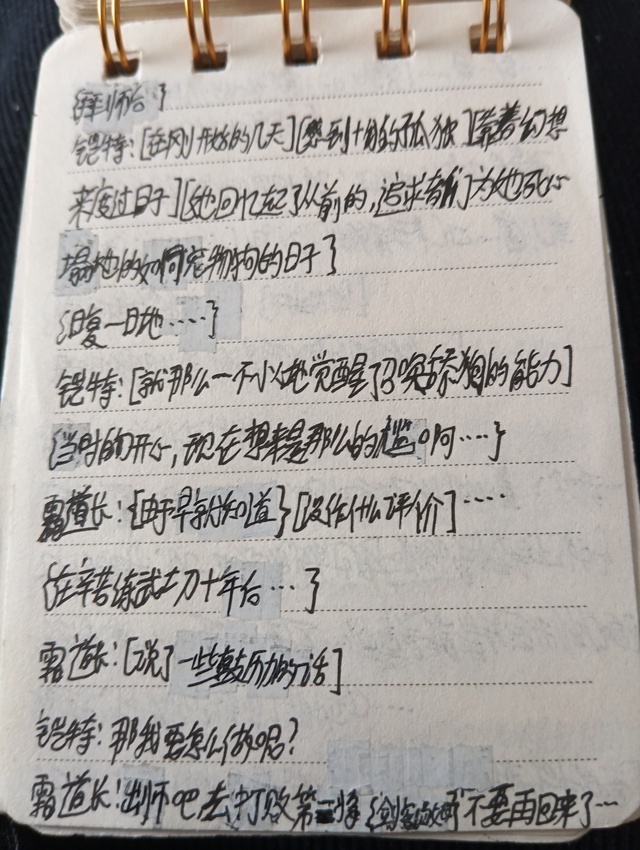 {拜师后}
铠特:[在刚开始的几天][感到十分的孤独][靠着幻想
来度过日子][她回忆起了从前的,追求者们为她死心
塌地的如同宠物狗的日子}
{日复一日地····}
铠特:[就那么一不小心地觉醒了召唤舔狗的能力]
{当时的开心,现在想来是那么的尴尬啊····}
霜道长:{由于早就知道}[没作什么评价]····
{在辛苦练武功十年后···}
霜道长:[说了一些鼓励的话]
铠特:那我要怎么做呢?
霜道长:出师吧去打败第二将 不要再回来了···